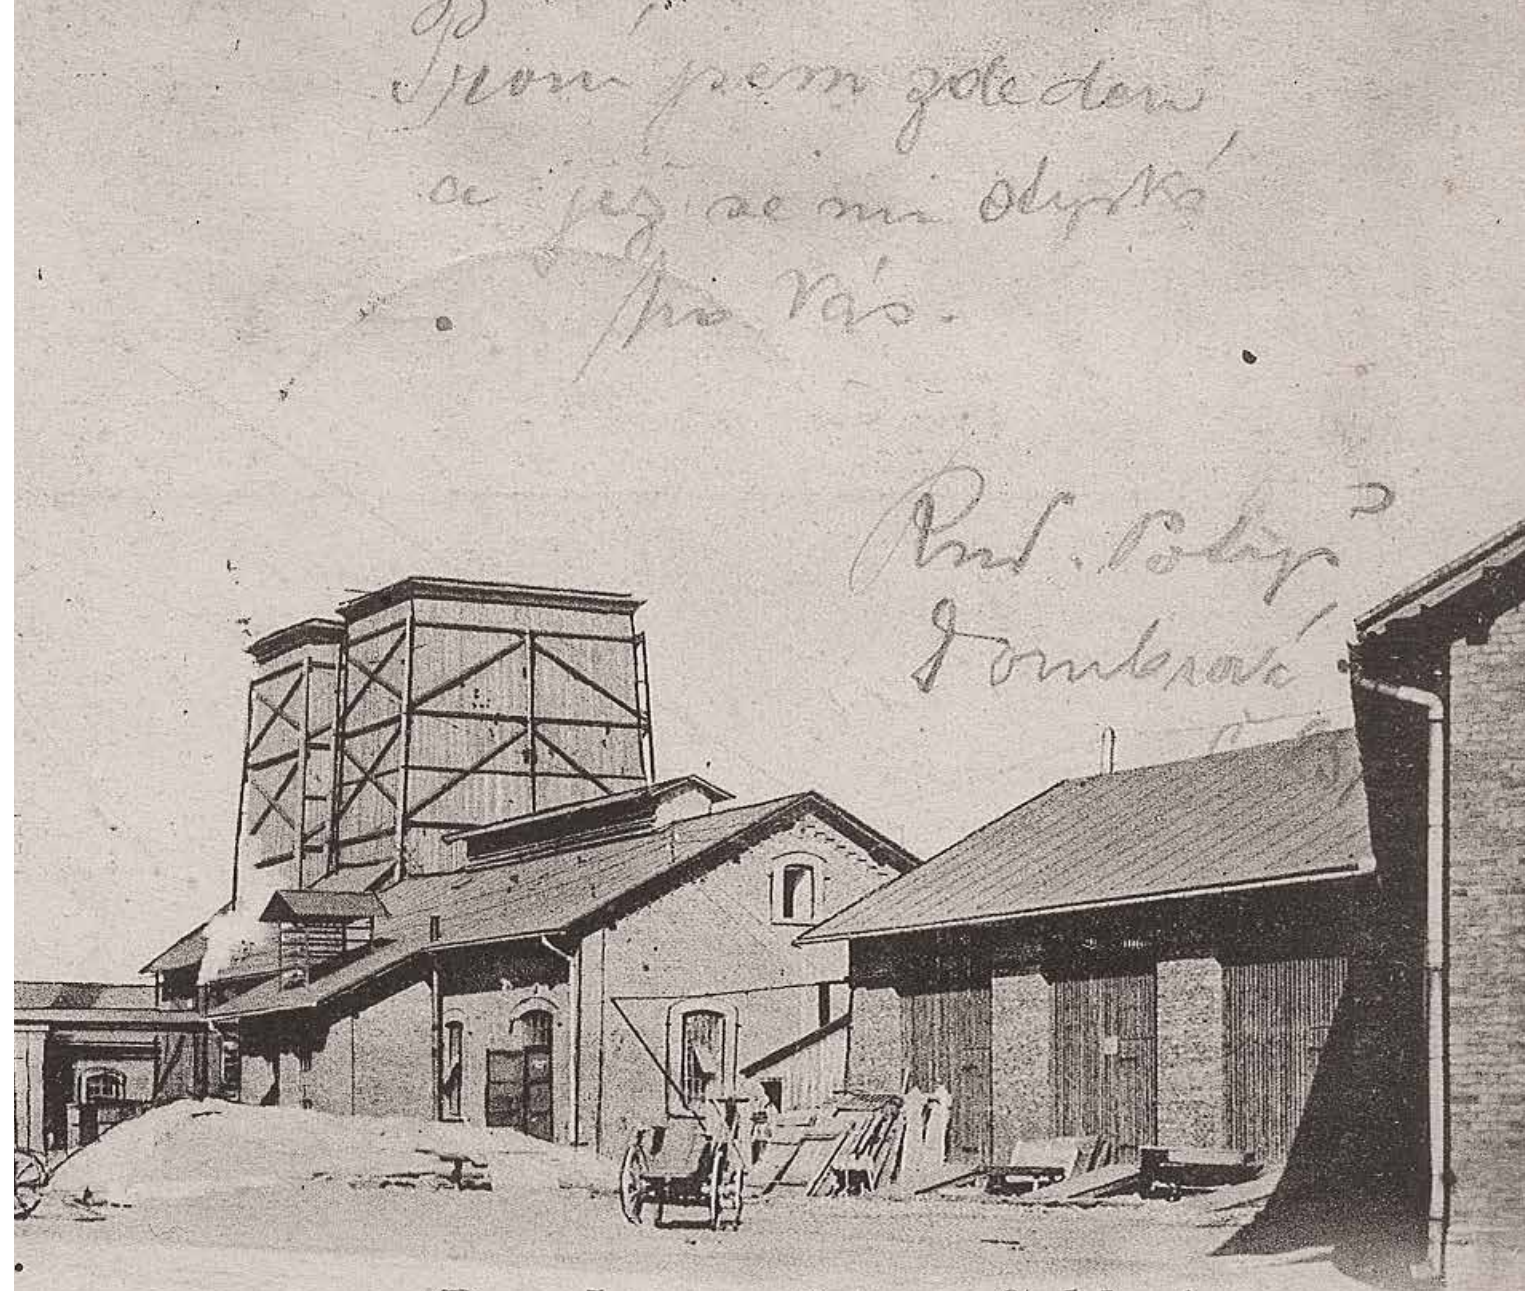 První jsem zde den
a již se mi stýská
po Vás.
Rud.
Dombrová